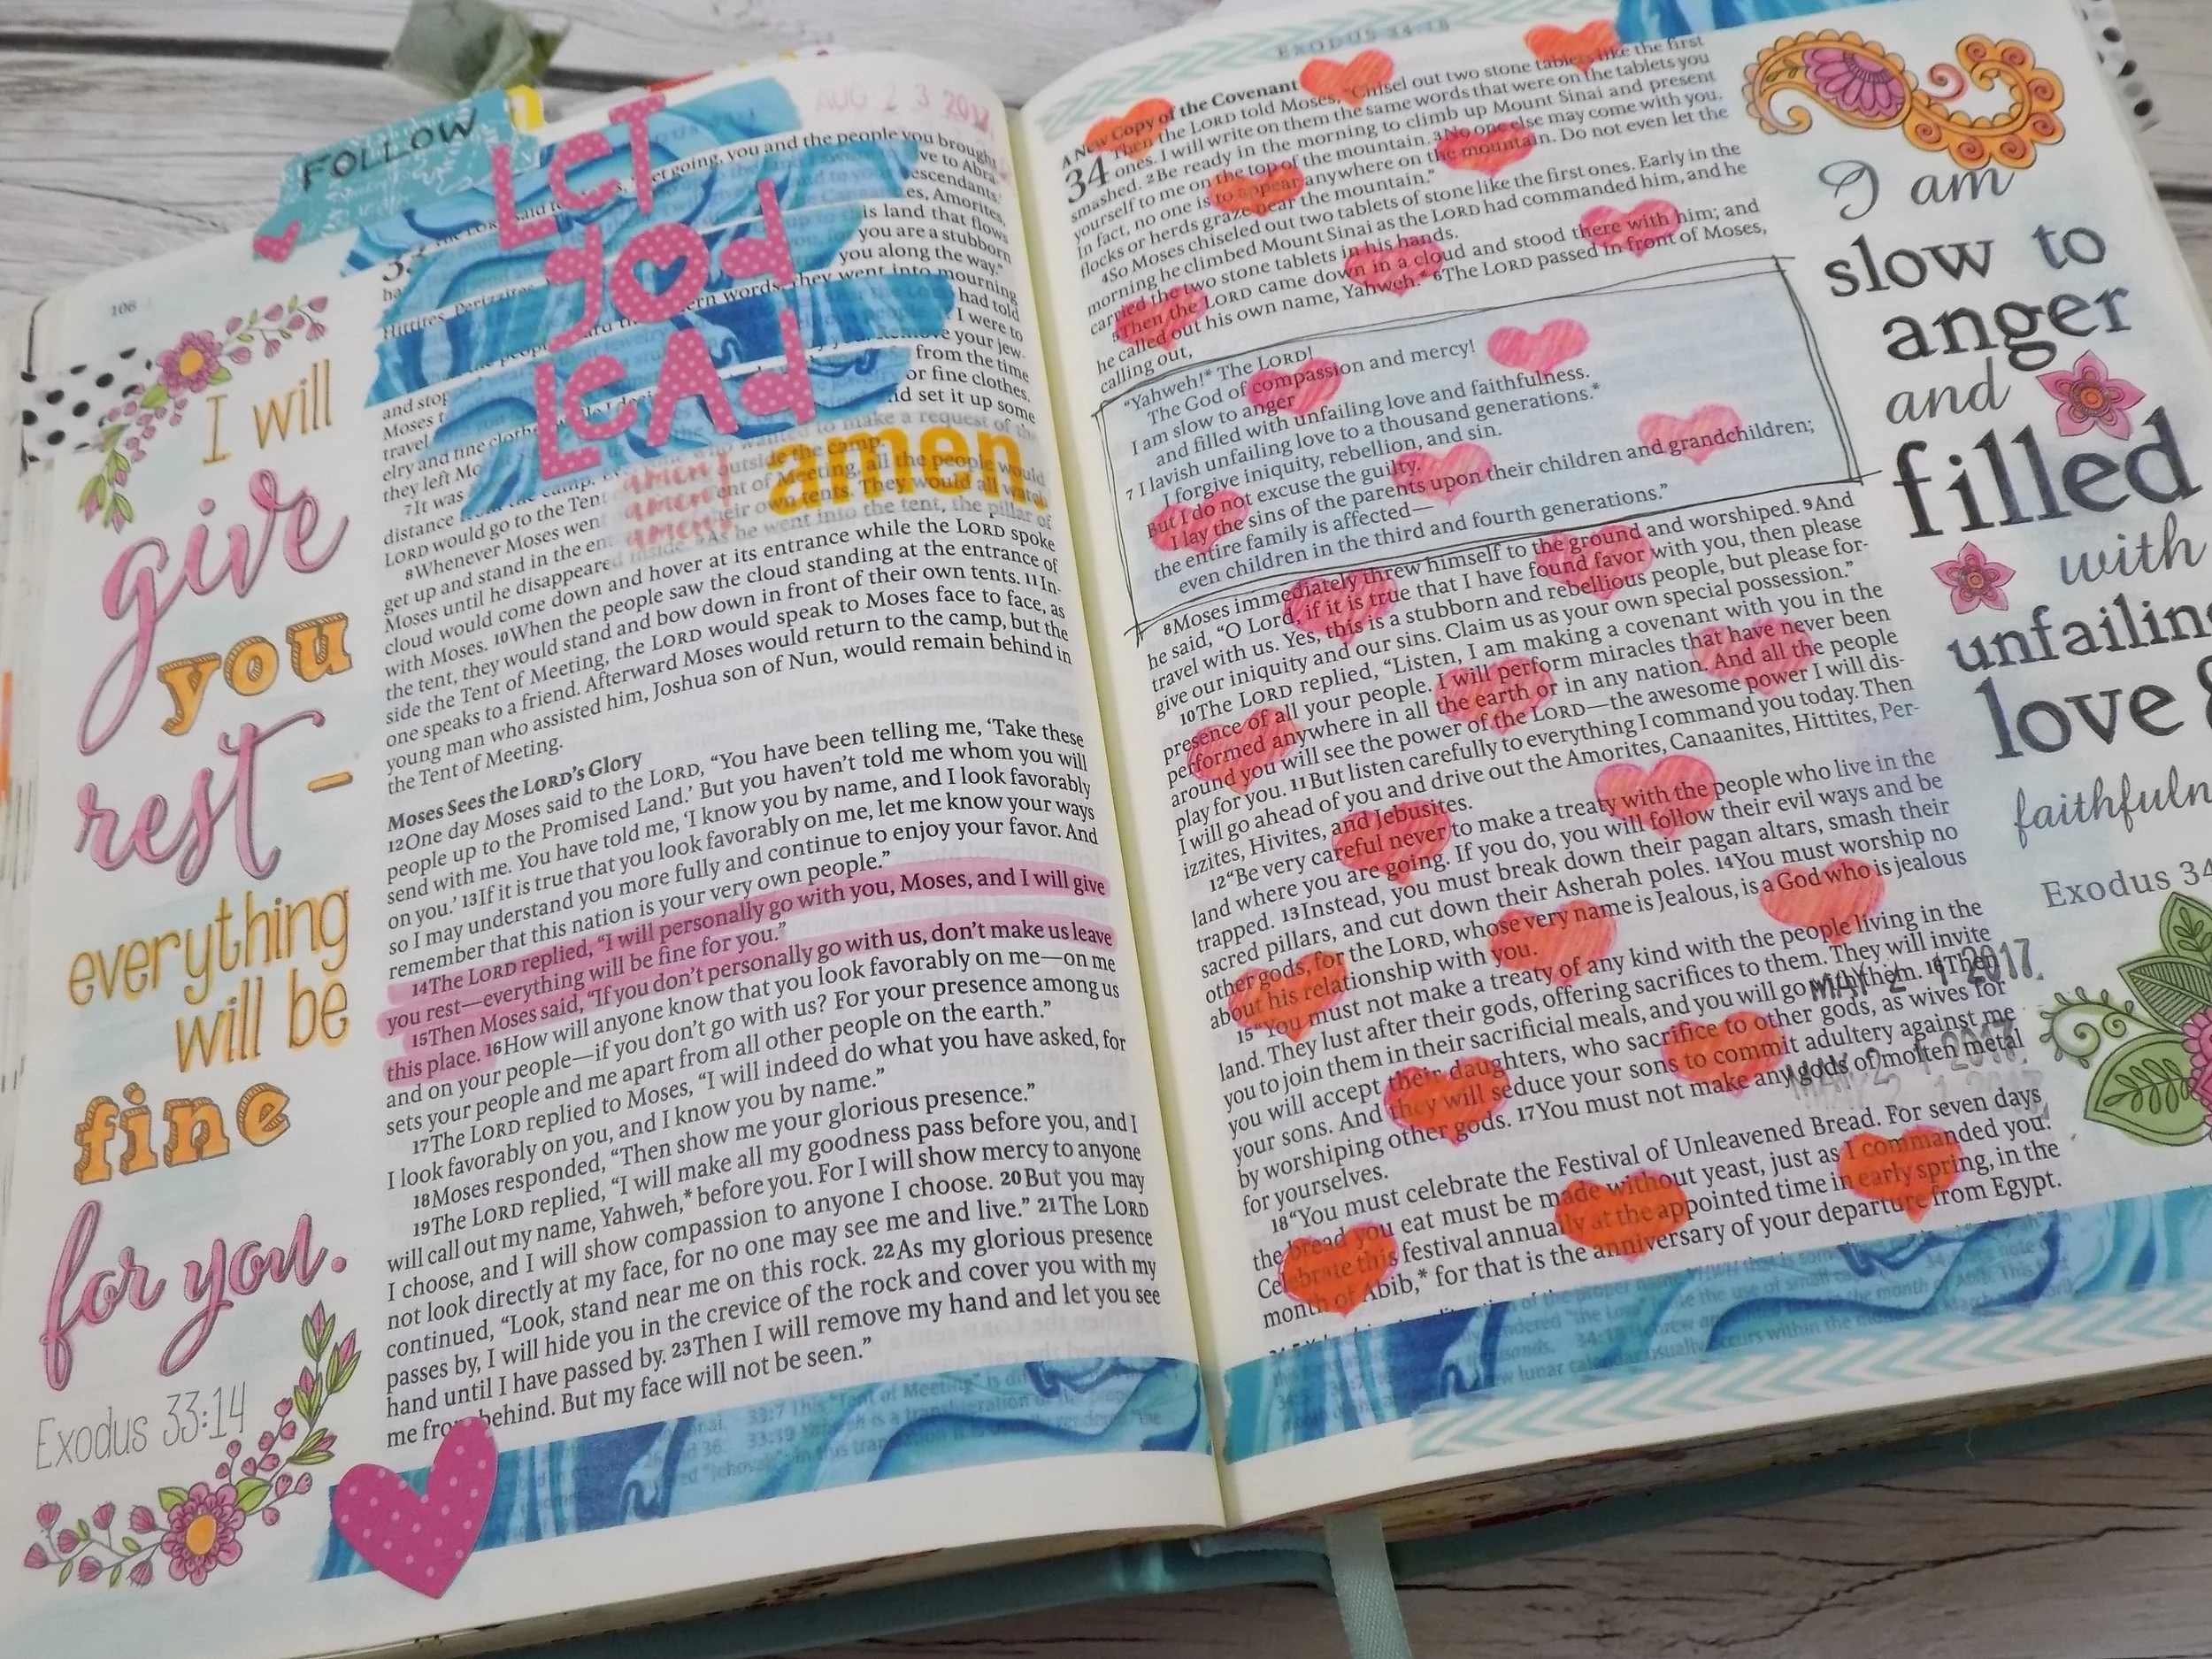 FOLLOW
LET
god
LEAd
AUG 2 3 2017
106
I will
give
you
rest –
everything
will be
fine
for you.
Exodus 33:14
get going, you and the people you brought
ve to Abra-
escendants.'
es, Amorites,
is land that flows
you are a stubborn
you along the way."
ern words, they went into mourning
had told
I were to
your jew-
from the time
or fine clothes.
nd set it up some
Hittites, Perizzites,
and stop
Moses
travel
elry and fine cloth
they left Mo
wanted to make a request of the
7It was
outside the camp.
distance
amen amen
LORD would go to the Tent
amen!
ent of Meeting, all the people would
8Whenever Moses wen
amen!
their own tents. They would all watch
get up and stand in the en
inside. 9As he went into the tent, the pillar of
Moses until he disappeared
cloud would come down and hover at its entrance while the LORD spoke
with Moses. 10When the people saw the cloud standing at the entrance of
the tent, they would stand and bow down in front of their own tents. 11In-
side the Tent of Meeting, the LORD would speak to Moses face to face, as
one speaks to a friend. Afterward Moses would return to the camp, but the
young man who assisted him, Joshua son of Nun, would remain behind in
the Tent of Meeting.
Moses Sees the LORD's Glory
12One day Moses said to the LORD, "You have been telling me, 'Take these
people up to the Promised Land.' But you haven't told me whom you will
send with me. You have told me, 'I know you by name, and I look favorably
on you.' 13If it is true that you look favorably on me, let me know your ways
so I may understand you more fully and continue to enjoy your favor. And
remember that this nation is your very own people."
14The LORD replied, "I will personally go with you, Moses, and I will give
you rest—everything will be fine for you."
15Then Moses said, "If you don't personally go with us, don't make us leave
this place. 16How will anyone know that you look favorably on me—on me
and on your people—if you don't go with us? For your presence among us
sets your people and me apart from all other people on the earth."
17The LORD replied to Moses, "I will indeed do what you have asked, for
I look favorably on you, and I know you by name."
18Moses responded, "Then show me your glorious presence."
19The LORD replied, "I will make all my goodness pass before you, and I
will call out my name, Yahweh,* before you. For I will show mercy to anyone
I choose, and I will show compassion to anyone I choose. 20But you may
not look directly at my face, for no one may see me and live." 21The LORD
continued, "Look, stand near me on this rock. 22As my glorious presence
passes by, I will hide you in the crevice of the rock and cover you with my
hand until I have passed by. 23Then I will remove my hand and let you see
me from behind. But my face will not be seen."
33:7 This "Tent of Meeting" is
33:19
EXODUS 34:18
A New Copy of the Covenant
34 Then the LORD told Moses, "Chisel out two stone tablets like the first
ones. I will write on them the same words that were on the tablets you
smashed. 2Be ready in the morning to climb up Mount Sinai and present
yourself to me on the top of the mountain. 3No one else may come with you.
In fact, no one is to appear anywhere on the mountain. Do not even let the
flocks or herds graze near the mountain."
4So Moses chiseled out two tablets of stone like the first ones. Early in the
morning he climbed Mount Sinai as the LORD had commanded him, and he
carried the two stone tablets in his hands.
5Then the LORD came down in a cloud and stood there with him; and
he called out his own name, Yahweh.* 6The LORD passed in front of Moses,
calling out,
"Yahweh!* The LORD!
The God of compassion and mercy!
I am slow to anger
and filled with unfailing love and faithfulness.
7 I lavish unfailing love to a thousand generations.*
I forgive iniquity, rebellion, and sin.
But I do not excuse the guilty.
I lay the sins of the parents upon their children and grandchildren;
the entire family is affected—
even children in the third and fourth generations."
8Moses immediately threw himself to the ground and worshiped. 9And
he said, "O Lord, if it is true that I have found favor with you, then please
travel with us. Yes, this is a stubborn and rebellious people, but please for-
give our iniquity and our sins. Claim us as your own special possession."
10The LORD replied, "Listen, I am making a covenant with you in the
presence of all your people. I will perform miracles that have never been
performed anywhere in all the earth or in any nation. And all the people
around you will see the power of the LORD—the awesome power I will dis-
play for you. 11But listen carefully to everything I command you today. Then
I will go ahead of you and drive out the Amorites, Canaanites, Hittites, Per-
izzites, Hivites, and Jebusites.
12"Be very careful never to make a treaty with the people who live in the
land where you are going. If you do, you will follow their evil ways and be
trapped. 13Instead, you must break down their pagan altars, smash their
sacred pillars, and cut down their Asherah poles. 14You must worship no
other gods, for the LORD, whose very name is Jealous, is a God who is jealous
about his relationship with you.
15"You must not make a treaty of any kind with the people living in the
land. They lust after their gods, offering sacrifices to them. They will invite
you to join them in their sacrificial meals, and you will go with them. 16Then
you will accept their daughters, who sacrifice to other gods, as wives for
your sons. And they will seduce your sons to commit adultery against me
by worshiping other gods. 17You must not make any gods of molten metal
for yourselves.
18"You must celebrate the Festival of Unleavened Bread. For seven days
the bread you eat must be made without yeast, just as I commanded you.
Celebrate this festival annually at the appointed time in early spring, in the
month of Abib,* for that is the anniversary of your departure from Egypt.
MAY 2 1 2017
MAY 2 1 2017
MAY 2 1 2017
I am
slow to
anger
and
filled
with
unfailin
love &
faithfuln
Exodus 34